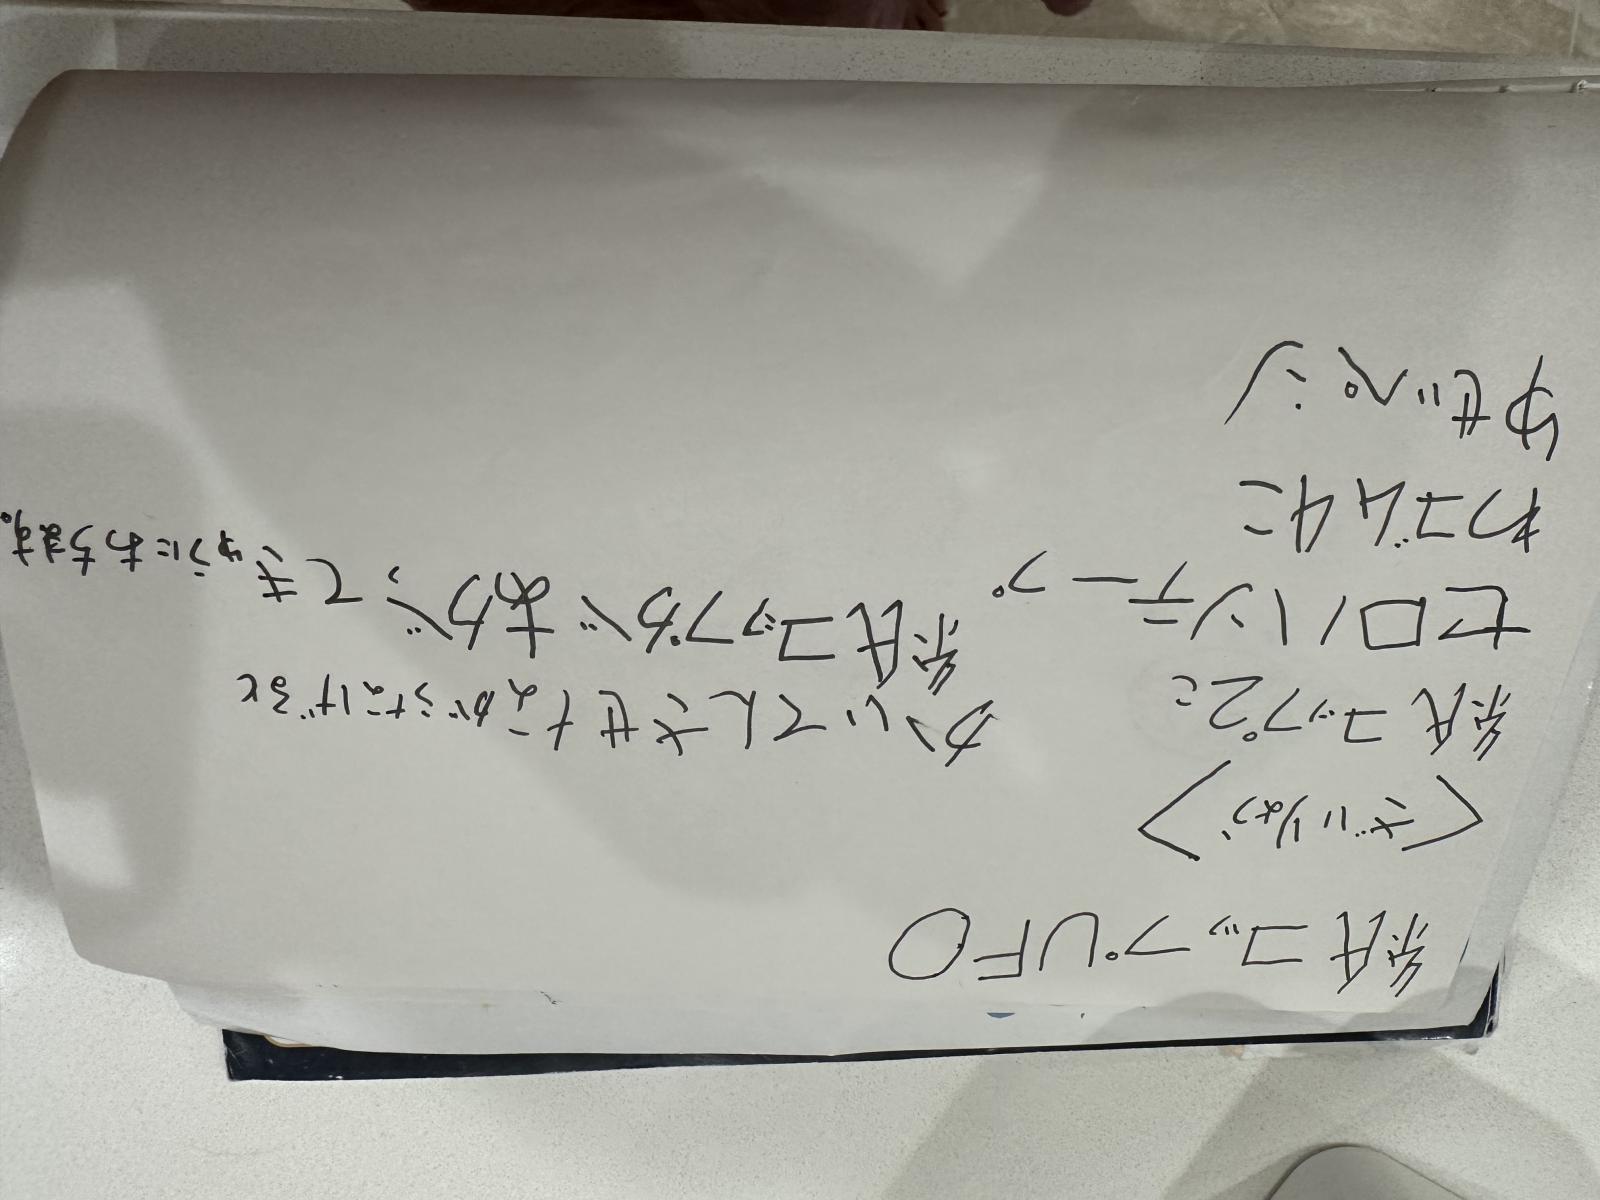 紙コップUFO
〈ざいりょう〉
紙コップ2こ
セロハンテープ
わゴム4こ
ゆせいペン
かいてんさせながらなげると
紙コップがあがってきゅうにおちます。